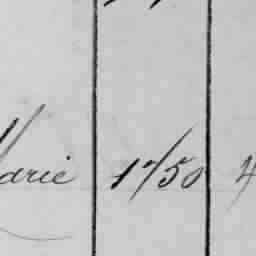 Marie 1750 4